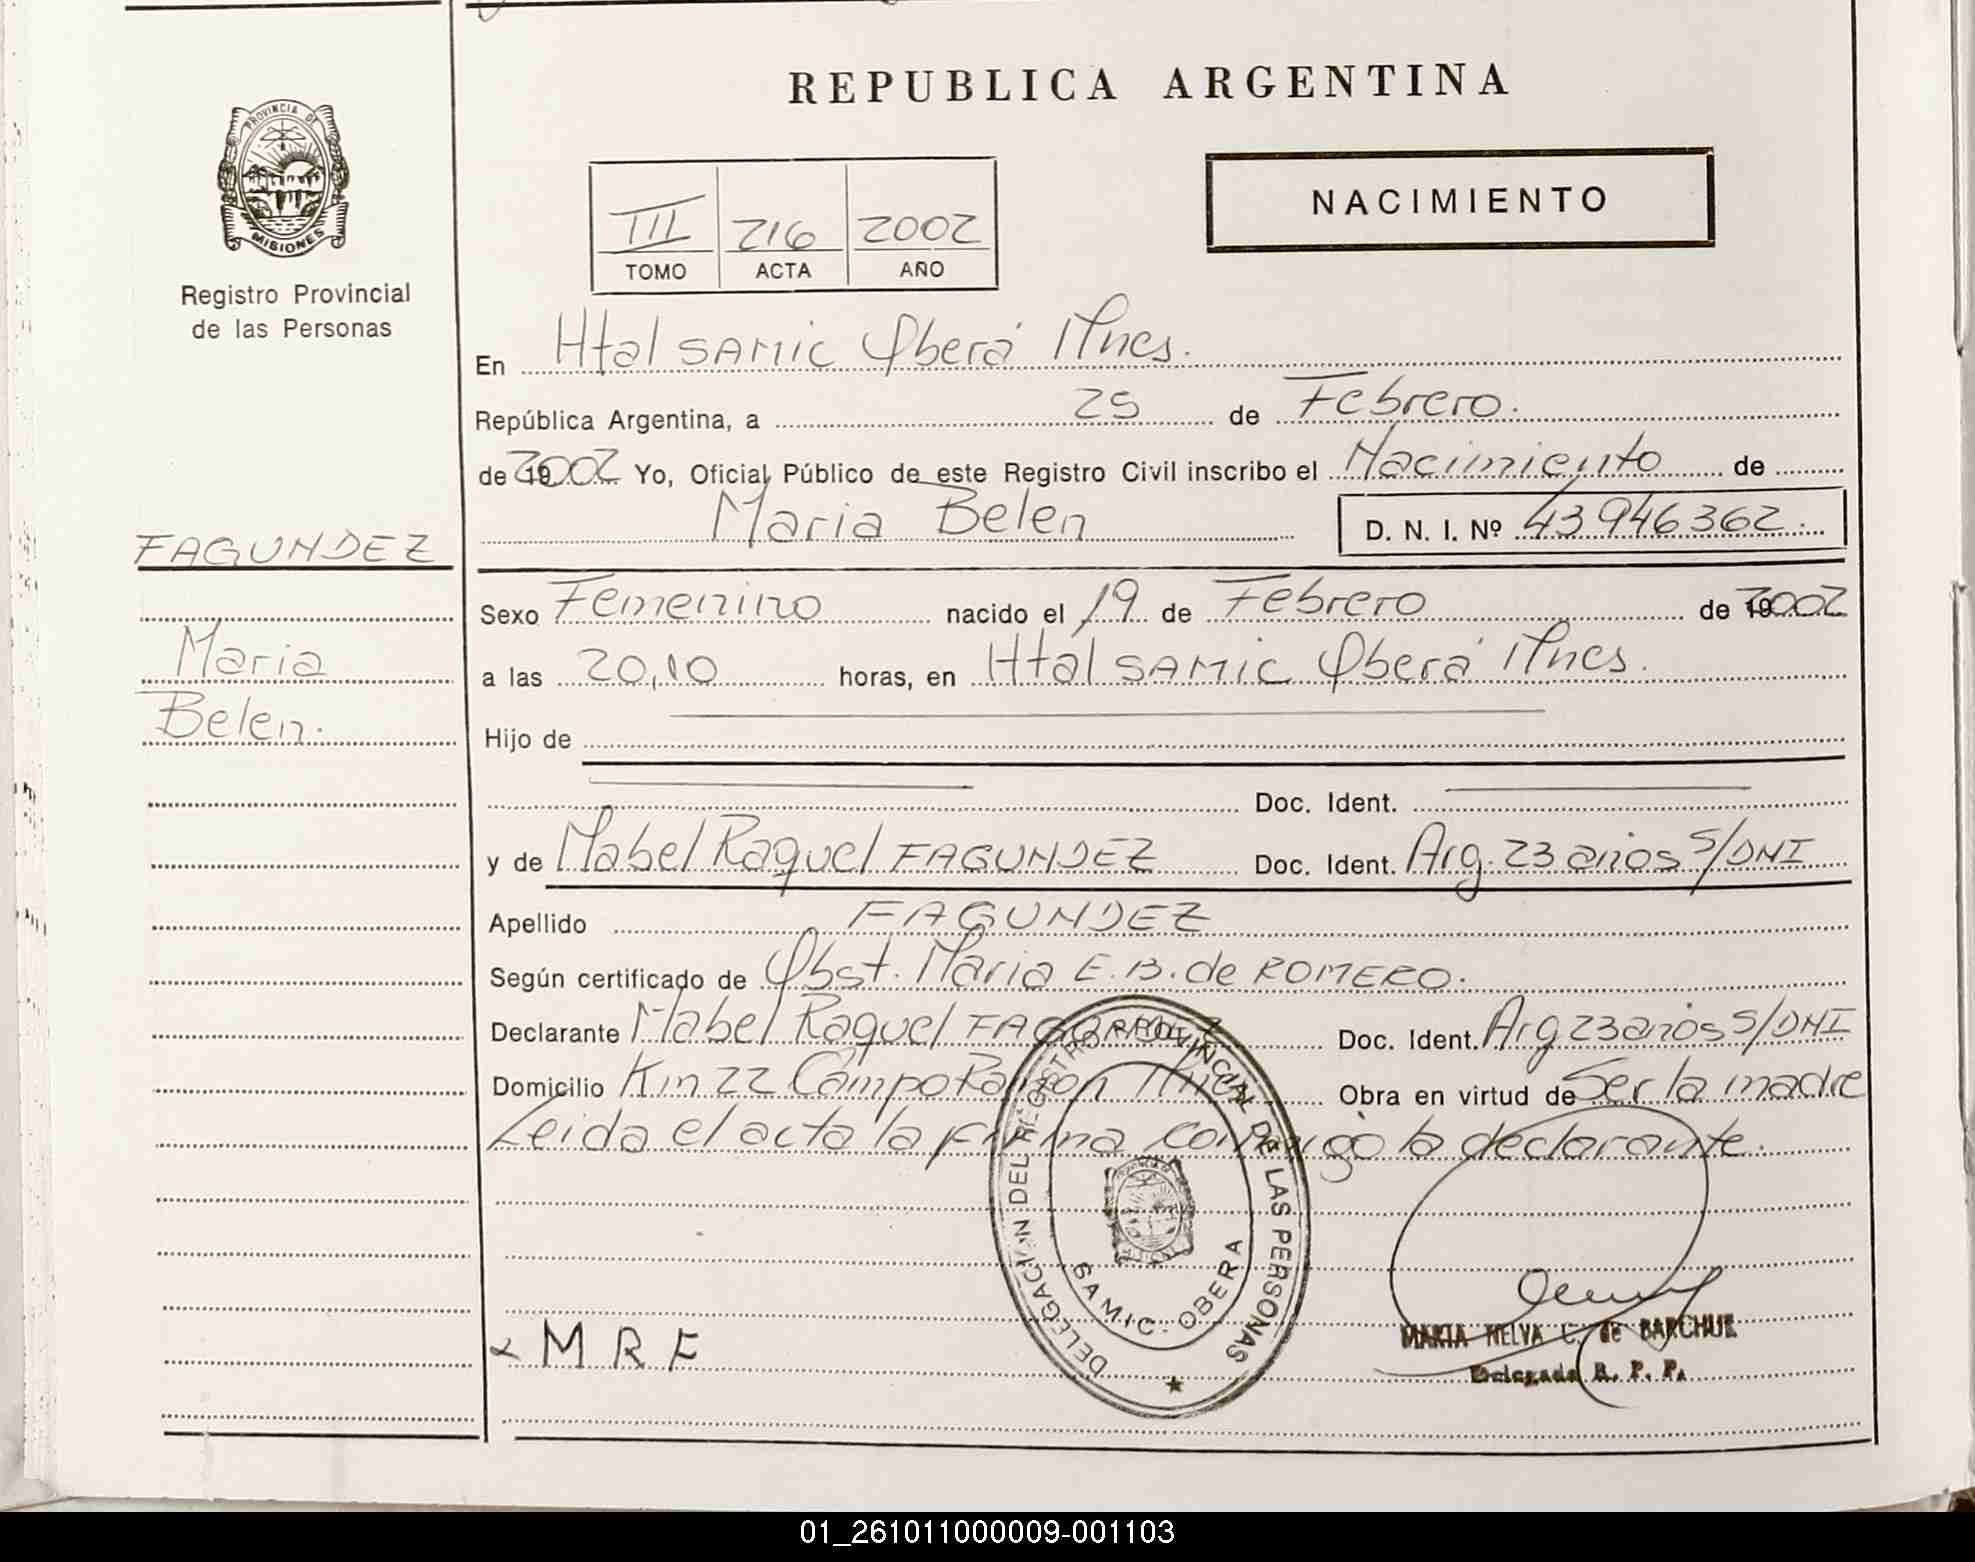 REPUBLICA ARGENTINA
PROVINCIA DE
MISIONES
Registro Provincial
de las Personas
NACIMIENTO
III 216 2002
TOMO ACTA AÑO
En Htal SAMIC Oberá Mnes.
República Argentina, a 25 de Febrero.
de 2002 Yo, Oficial Público de este Registro Civil inscribo el Nacimiento de
Maria Belen D. N. I. Nº 43946362.
FAGUNDEZ
Maria
Belen.
Sexo Femenino nacido el 19 de Febrero de 2002
a las 20,10 horas, en Htal SAMIC Oberá Mnes.
Hijo de
Doc. Ident.
y de Mabel Raquel FAGUNDEZ Doc. Ident. Arg. 23 años S/DNI
Apellido FAGUNDEZ
Según certificado de Obst. Maria E. B. de ROMERO.
Declarante Mabel Raquel FAGUNDEZ Doc. Ident. Arg 23 años S/DNI
Domicilio Km 22 Campo Ramon Mnes Obra en virtud de Ser la madre
Leida el acta la firma conmigo la declarante.
DELEGACION DEL REGISTRO PROVINCIAL DE LAS PERSONAS
SAMIC - OBERA
M R F
MARIA NELVA C. de BARCHUK
Delegada R. P. P.
01_261011000009-001103